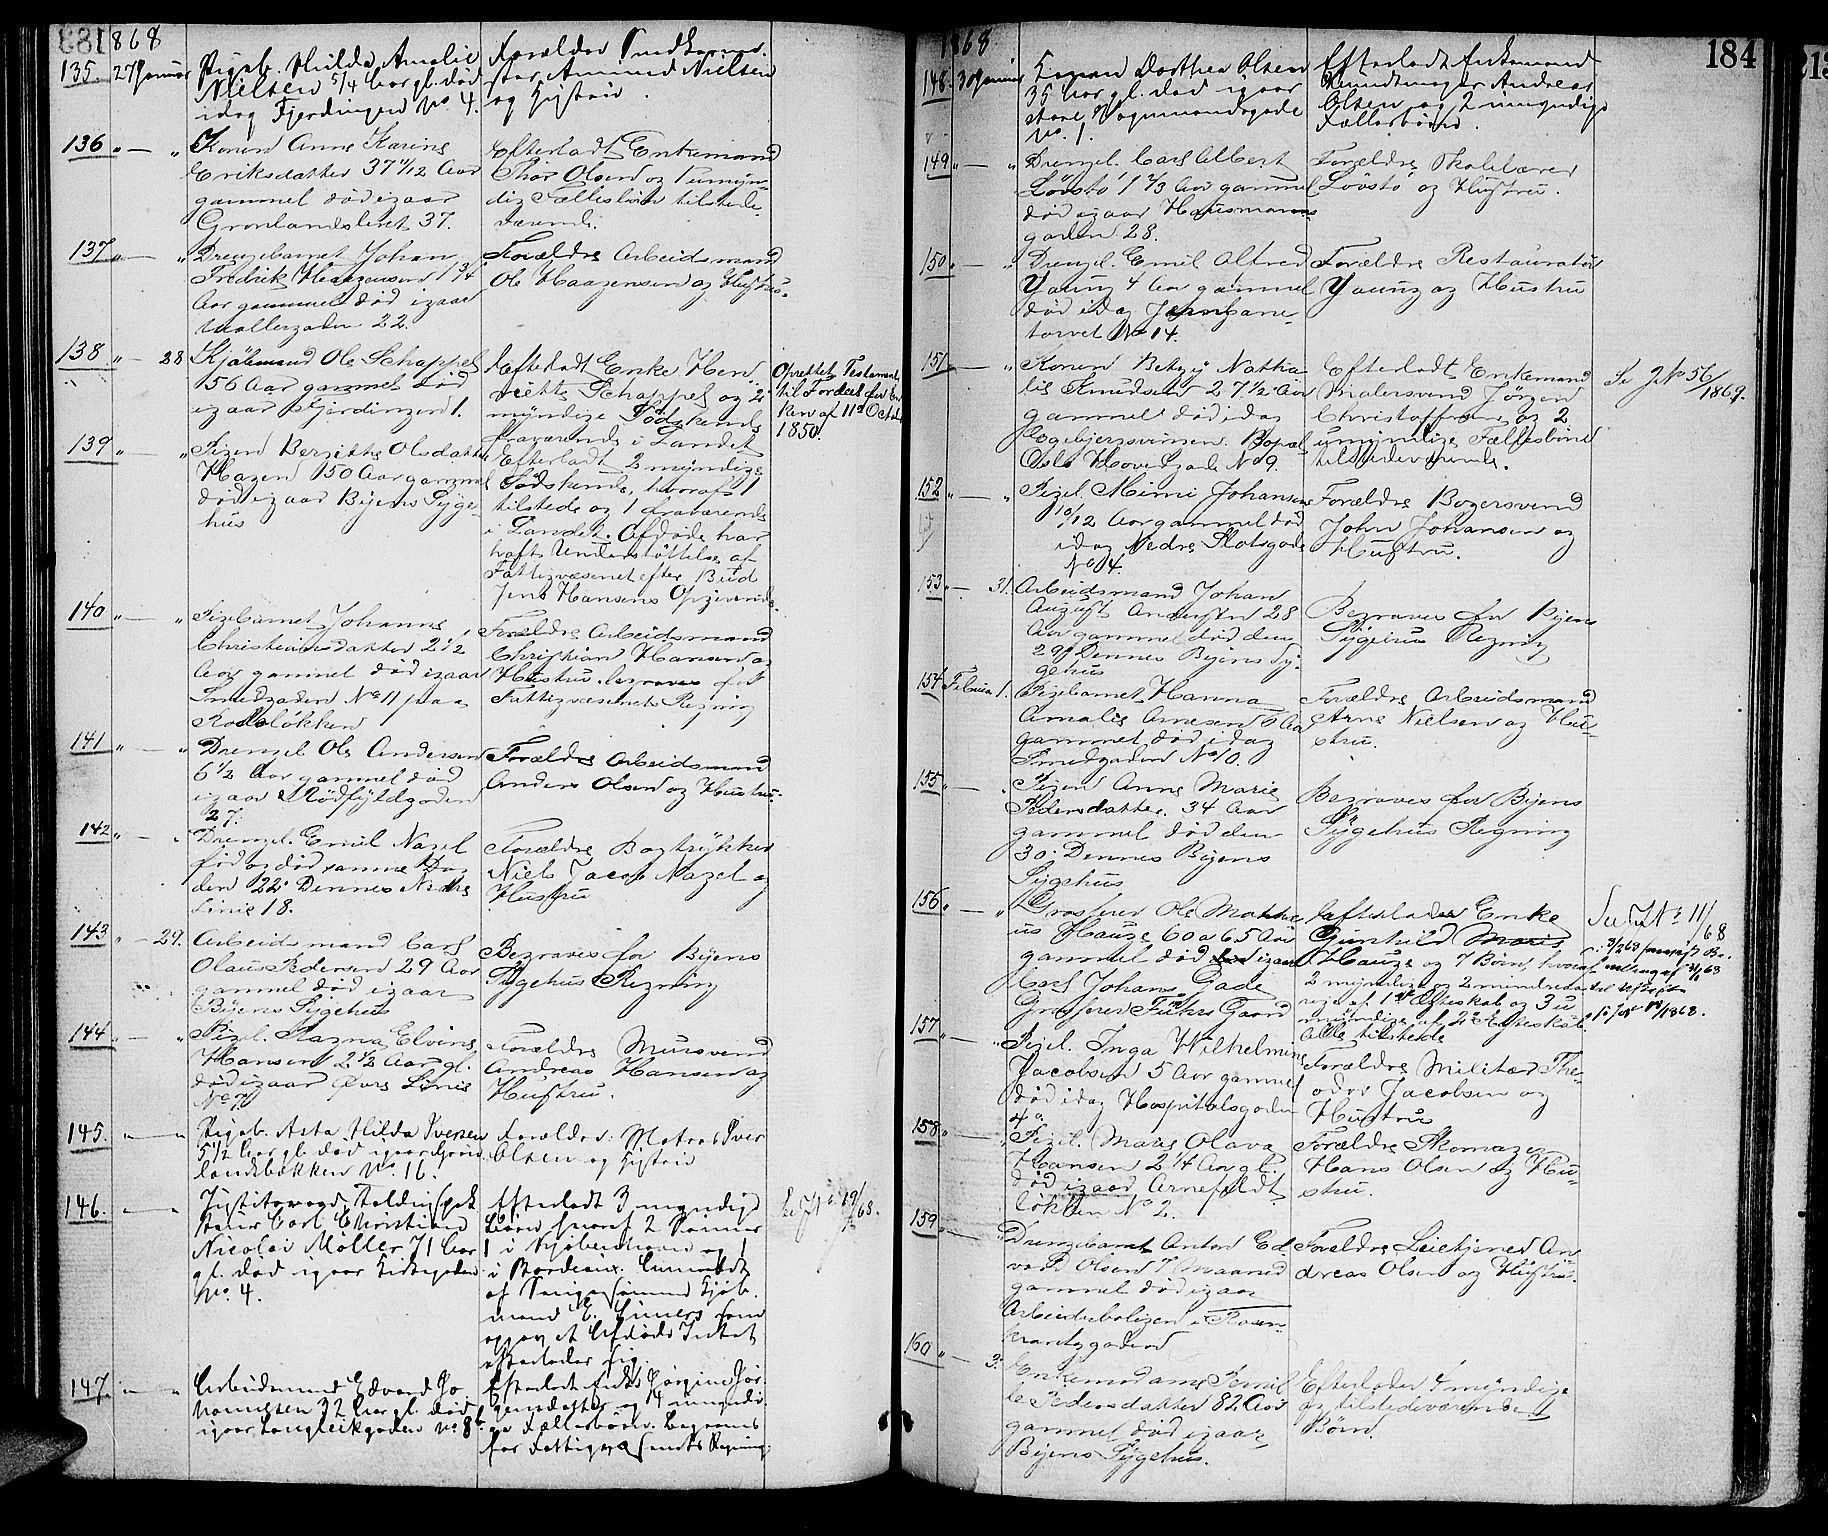 1868
135. 27 Januar Pigeb. Hilda Amalie
Nielsen 5/4 Aar gl. død
idag Fjerdingen No 4.
Forældre
Amund Nielsen
og Hustru.
136 " — " Konen Anne Karine
Eriksdatter 37 11/12 Aar
gammel død igaar
Grønlandsleret 37.
Efterladt Enkemand
Thor Olsen og 1 umyn-
dig Fællesbarn tilstede-
værende.
137 " — " Drengebarnet Johan
Fredrik Haagensen 1 3/4
Aar gammel død igaar
Møllergaden 22.
Forældre Arbeidsmand
Ole Haagensen og Hustru.
138 " — 28 Kjøbmand Ole Schappel
56 Aar gammel død
igaar Fjerdingen 1.
Efterladt Enke Hen-
riette Schappel og 2
myndige Sødskende
fraværende i Landet
Oprettet Testament
til Fordeel for En-
ken af 11te Octob.
1850.
139 " — " Pigen Bergitte Olsdatter
Hagen 50 Aar gammel
død igaar Byens Syge-
hus
Efterladt 2 myndige
Sødskende, hvoraf 1
tilstede og 1 fraværende
i Landet. Afdøde har
havt Understøttelse af
Fattigvæsenet efter Bud
Jens Hansens Opgivende.
140 " — " Pigebarnet Johanne
Christiansdatter 2 1/2
Aar gammel død igaar
Smedgaden No 11 paa
Rodeløkken
Forældre Arbeidsmand
Christian Hansen og
Hustru. begraves for
Fattigvæsenets Regning
141 " — " Drengeb. Ole Andersen
6 1/2 Aar gammel død
igaar Rødfyldgaden
27.
Forældre Arbeidsmand
Anders Olsen og Hustru.
142 " — " Drengeb. Emil Nagel
fød og død samme Dag
den 22. Dennes Nedre
Linie 18.
Forældre Bogtrykker
Niels Jacob Nagel og
Hustru
143 " — 29. Arbeidsmand Carl
Olaus Pedersen 29 Aar
gammel død igaar
Byens Sygehus
Begraves for Byens
Sygehus Regning
144 " — " Pigeb. Ragna Elvine
Hansen 2 1/2 Aar gl.
død igaar Øvre Linie
No 7
Forældre Mursvend
Andreas Hansen og
Hustru.
145. " — " Pigeb. Asta Hilda Iversen
5 1/2 Aar gl. død igaar Grøn-
landsbakken No. 16.
Forældre: Matros Iver
Olsen og Hustru
146. — "
Carl Christian
Nicolai Møller 71 Aar
gl. død igaar Kirkegaden
No. 4.
Efterladt 3 myndige
Børn hvoraf 2 Sønner
1 i Kjøbenhavn og 1
i Bordeaux.
af Svigersønnen Kjøb-
mand E.
som
opgav at Afdøde Intet
efterlader sig.
147. " — " Arbeidsmand Edvard Jo-
hannessen 32 Aar gl. død
igaar Langleikgaden No 8b.
Efterladt Enke Jørgine Jør-
gensdatter og 4 umyndi-
ge Fællesbørn. Begraves
for Fattigvæsenets Regning.
1868
184
148. 30 Januar Konen Dorthea Olsen
35 Aar gl. død igaar
store Vognmandsgade
No. 1.
Efterladt Enkemand
Andreas
Olsen og 2 umyndige
Fællesbørn.
149 " — " Drengeb. Carl Albert
Løvstø 1 2/3 Aar gammel
død igaar Hausmanns
gaden 28.
Forældre Skolelærer
Løvstø og Hustru.
150 " — " Drengeb. Emil Alfred
Young 4 Aar gammel
død idag Jernbane-
torvet No 14.
Forældre Restauratør
Young og Hustru
151 — " Konen Betzy Natha-
lie Knudsen 27 1/2 Aar
gammel død idag
Bopæl
Oslo Hovedgade No 9.
Efterladt Enkemand
Malersvend Jørgen
Christoffersen og 2
umyndige Fællesbørn
tilstedeværende.
Se J No 56/1869.
152 " — " Pigeb. Mimi Johansen
10/12 Aar gammel død
idag Nedre Slotsgade
No 4.
Forældre Bagersvend
John Johansen og
Hustru.
153 " — 31. Arbeidsmand Johan
August Andersen 28
Aar gammel død den
29de Dennes Byens Sy-
gehus
Begraves for Byens
Sygehus Regning
154 Februar 1. Pigebarnet Hanna
Amalie Arnesen 6 Aar
gammel død idag
Smedgaden No 10.
Forældre Arbeidsmand
Arne Nielsen og Hu-
stru.
155 " — Pigen Anne Marie
Pedersdatter 34 Aar
gammel død den
30. Dennes Byens
Sygehus
Begraves for Byens
Sygehus Regning
156 " — " Grosserer Ole Mathi-
us Hauge 60 a 65 Aar
gammel død igaar
Carl Johans Gade
Grosserer Fuhrs Gaard
Efterlader Enke
Gunhild Marie
Hauge og 7 Børn, hvoraf
2 myndige og 2 mindreaa-
rige af 1ste Ægteskab og 3 u-
myndige af 2det Ægteskab
Alle tilstede
See J No 11/68
157 " — " Pigeb. Inga Wilhelmine
Jacobsen 5 Aar gammel
død idag Hospitalsgaden
4a
Forældre Militær The-
odor Jacobsen og
Hustru
158 " — Pigeb. Maren Olava
Hansen 2 1/4 Aar gl.
død igaar Arnefeldt
løkken No 2.
Forældre Skomager
Hans Olsen og Hu-
stru.
159 " — Drengebarnet Anton Ed-
vard Olsen 7 Maaned
gammel død igaar
Arbeiderboligen i Rosen-
krantzgaden
Forældre Leiekjører An-
dreas Olsen og Hustru.
160 " — 3. Enkemadame Pernil-
le Pedersdatter 82 Aar
gammel død igaar
Byens Sygehus.
Efterlader 4 myndige
og tilstedeværende
Børn.